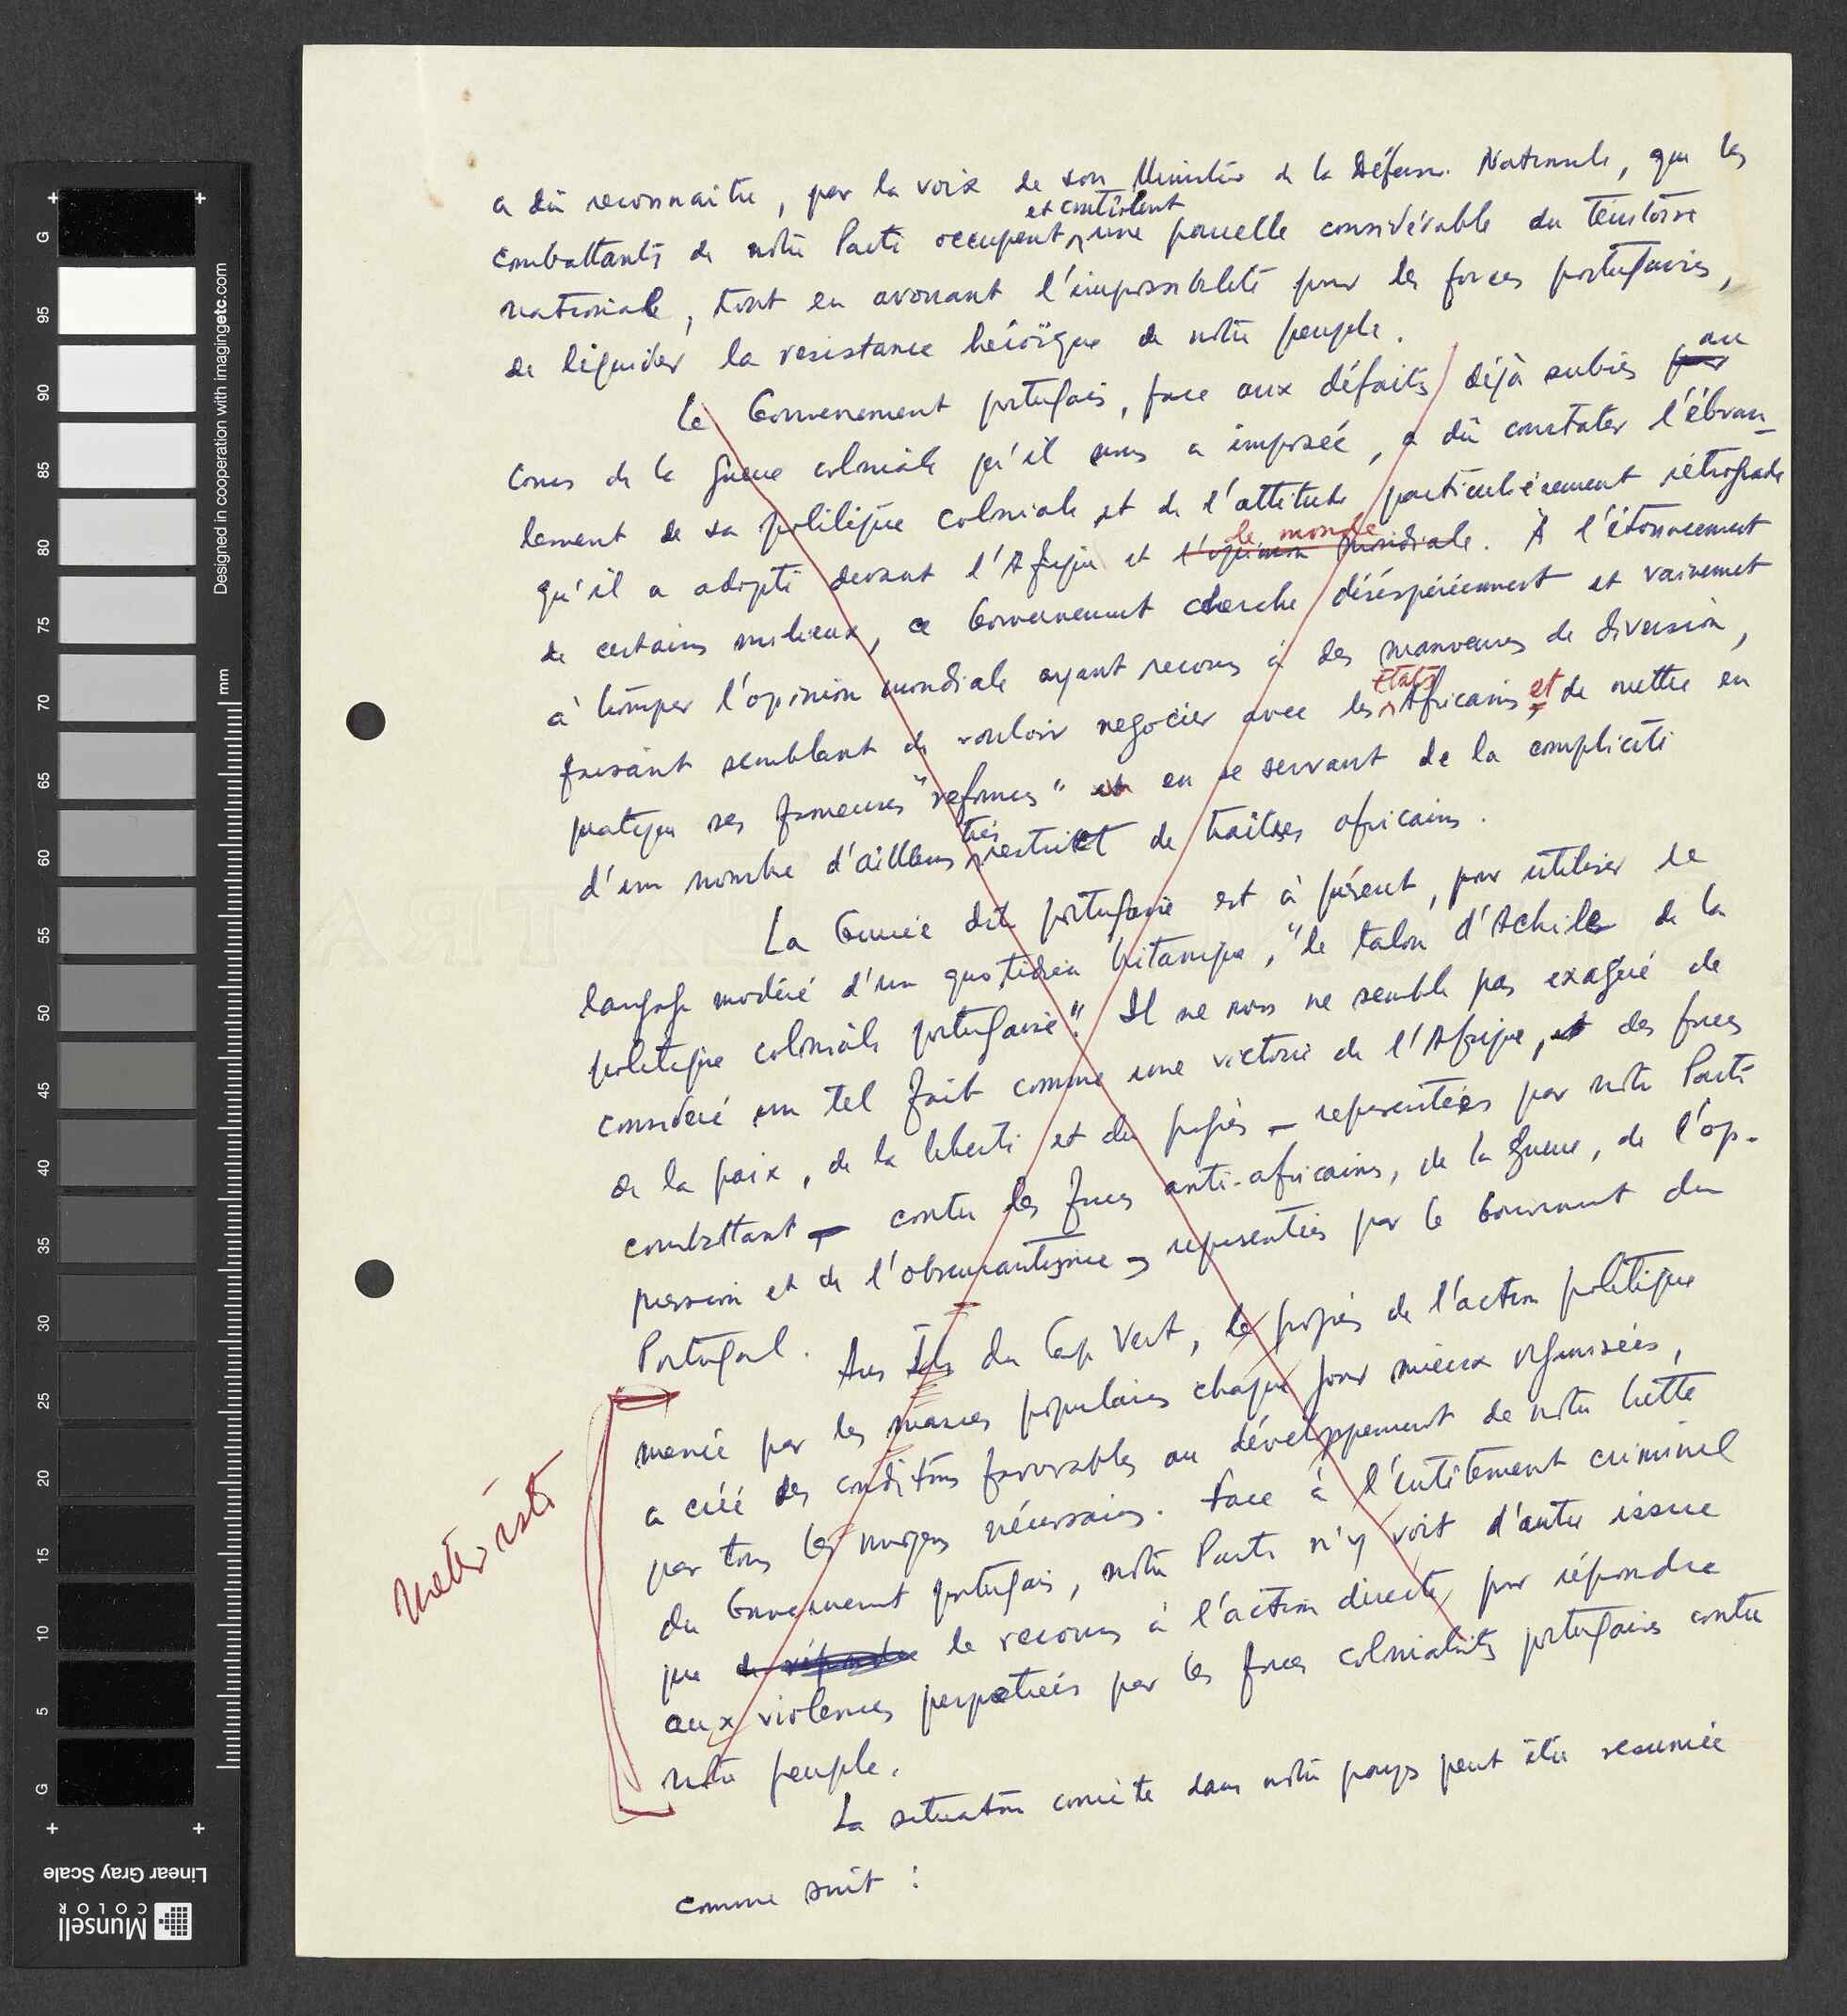 a dû reconnaître, par la voix de son Ministère de la Défense Nationale, que les
et contrôlent
combattants de notre Parti occupent une parcelle considérable du territoire
nationale, tout en avouant l'impossibilité pour les forces portugaises,
de liquider la resistance héroïque de notre peuple.
au
Le Gouvernement portugais, face aux défaites déjà subies par
cours de la guerre coloniale qu'il nous a imposée, a dû constater l'ébran-
lement de sa politique coloniale et de l'attitude particulièrement rétrograde
le monde
qu'il a adopté devant l'Afrique et l'opinion mondiale. À l'étonnement
de certains milieux, ce Gouvernement cherche désespérément et vainement
à tromper l'opinion mondiale ayant recours à des manoeuvres de diversion,
Etats
faisant semblant de vouloir negocier avec les Africains, et de mettre en
pratique ses fameuses "reformes" et en se servant de la complicité
très
d'un nombre d'ailleurs restrict de traîtres africains.
La Guinée dite portugaise est à présent, pour utiliser le
langage modéré d'un quotidien britanique, "le talon d'Achile de la
politique coloniale portugaise". Il ne nous ne semble pas exagéré de
considéré un tel fait comme une victoire de l'Afrique, et des forces
de la paix, de la liberté et du progrès — representées par notre Parti
combattant — contre les forces anti-africaines, de la guerre, de l'op-
pression et de l'obscurantisme — representées par le Gouvernement du
Portugal.
Aux Iles du Cap Vert, le progrès de l'action politique
menée par les masses populaires chaque jour mieux organisées,
a créé des conditions favorables au développement de notre lutte
par tous les moyens nécessaires. Face à l'entêtement criminel
du Gouvernement portugais, notre Parti n'y voit d'autre issue
que de répondre le recours à l'action directe, pour répondre
aux violences perpetrées par les forces colonialistes portugaises contre
notre peuple.
La situation concrète dans notre pays peut être resumée
comme suit :
meter isto
Designed in cooperation with imagingetc.com
mm
G
95
90
85
80
75
70
65
60
55
50
45
40
35
30
25
20
15
10
5
G
Linear Gray Scale
Munsell
COLOR